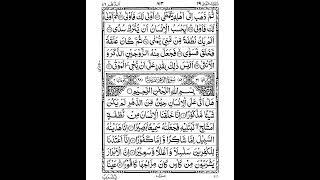 ثُمَّ ذَهَبَ اِلٰٓى اَهْلِهٖ يَتَمَطّٰى اَوْلٰى لَكَ فَاَوْلٰى ثُمَّ
اَوْلٰى لَكَ فَاَوْلٰى اَيَحْسَبُ الْاِنْسَانُ اَنْ يُّتْرَكَ سُدًى
اَلَمْ يَكُ نُطْفَةً مِّنْ مَّنِيٍّ يُّمْنٰى ثُمَّ كَانَ عَلَقَةً
فَخَلَقَ فَسَوّٰى فَجَعَلَ مِنْهُ الزَّوْجَيْنِ الذَّكَرَ وَ
الْاُنْثٰى اَلَيْسَ ذٰلِكَ بِقٰدِرٍ عَلٰٓى اَنْ يُّحْيِۦَ الْمَوْتٰى
بِسْمِ اللّٰهِ الرَّحْمٰنِ الرَّحِيْمِ
هَلْ اَتٰى عَلَى الْاِنْسَانِ حِيْنٌ مِّنَ الدَّهْرِ لَمْ يَكُنْ
شَيْئًا مَّذْكُوْرًا اِنَّا خَلَقْنَا الْاِنْسَانَ مِنْ نُّطْفَةٍ
اَمْشَاجٍ نَّبْتَلِيْهِ فَجَعَلْنٰهُ سَمِيْعًا بَصِيْرًا اِنَّا هَدَيْنٰهُ
السَّبِيْلَ اِمَّا شَاكِرًا وَّاِمَّا كَفُوْرًا اِنَّآ اَعْتَدْنَا
لِلْكٰفِرِيْنَ سَلٰسِلَا۟ وَاَغْلٰلًا وَّسَعِيْرًا اِنَّ الْاَبْرَارَ
يَشْرَبُوْنَ مِنْ كَاْسٍ كَانَ مِزَاجُهَا كَافُوْرًا عَيْنًا